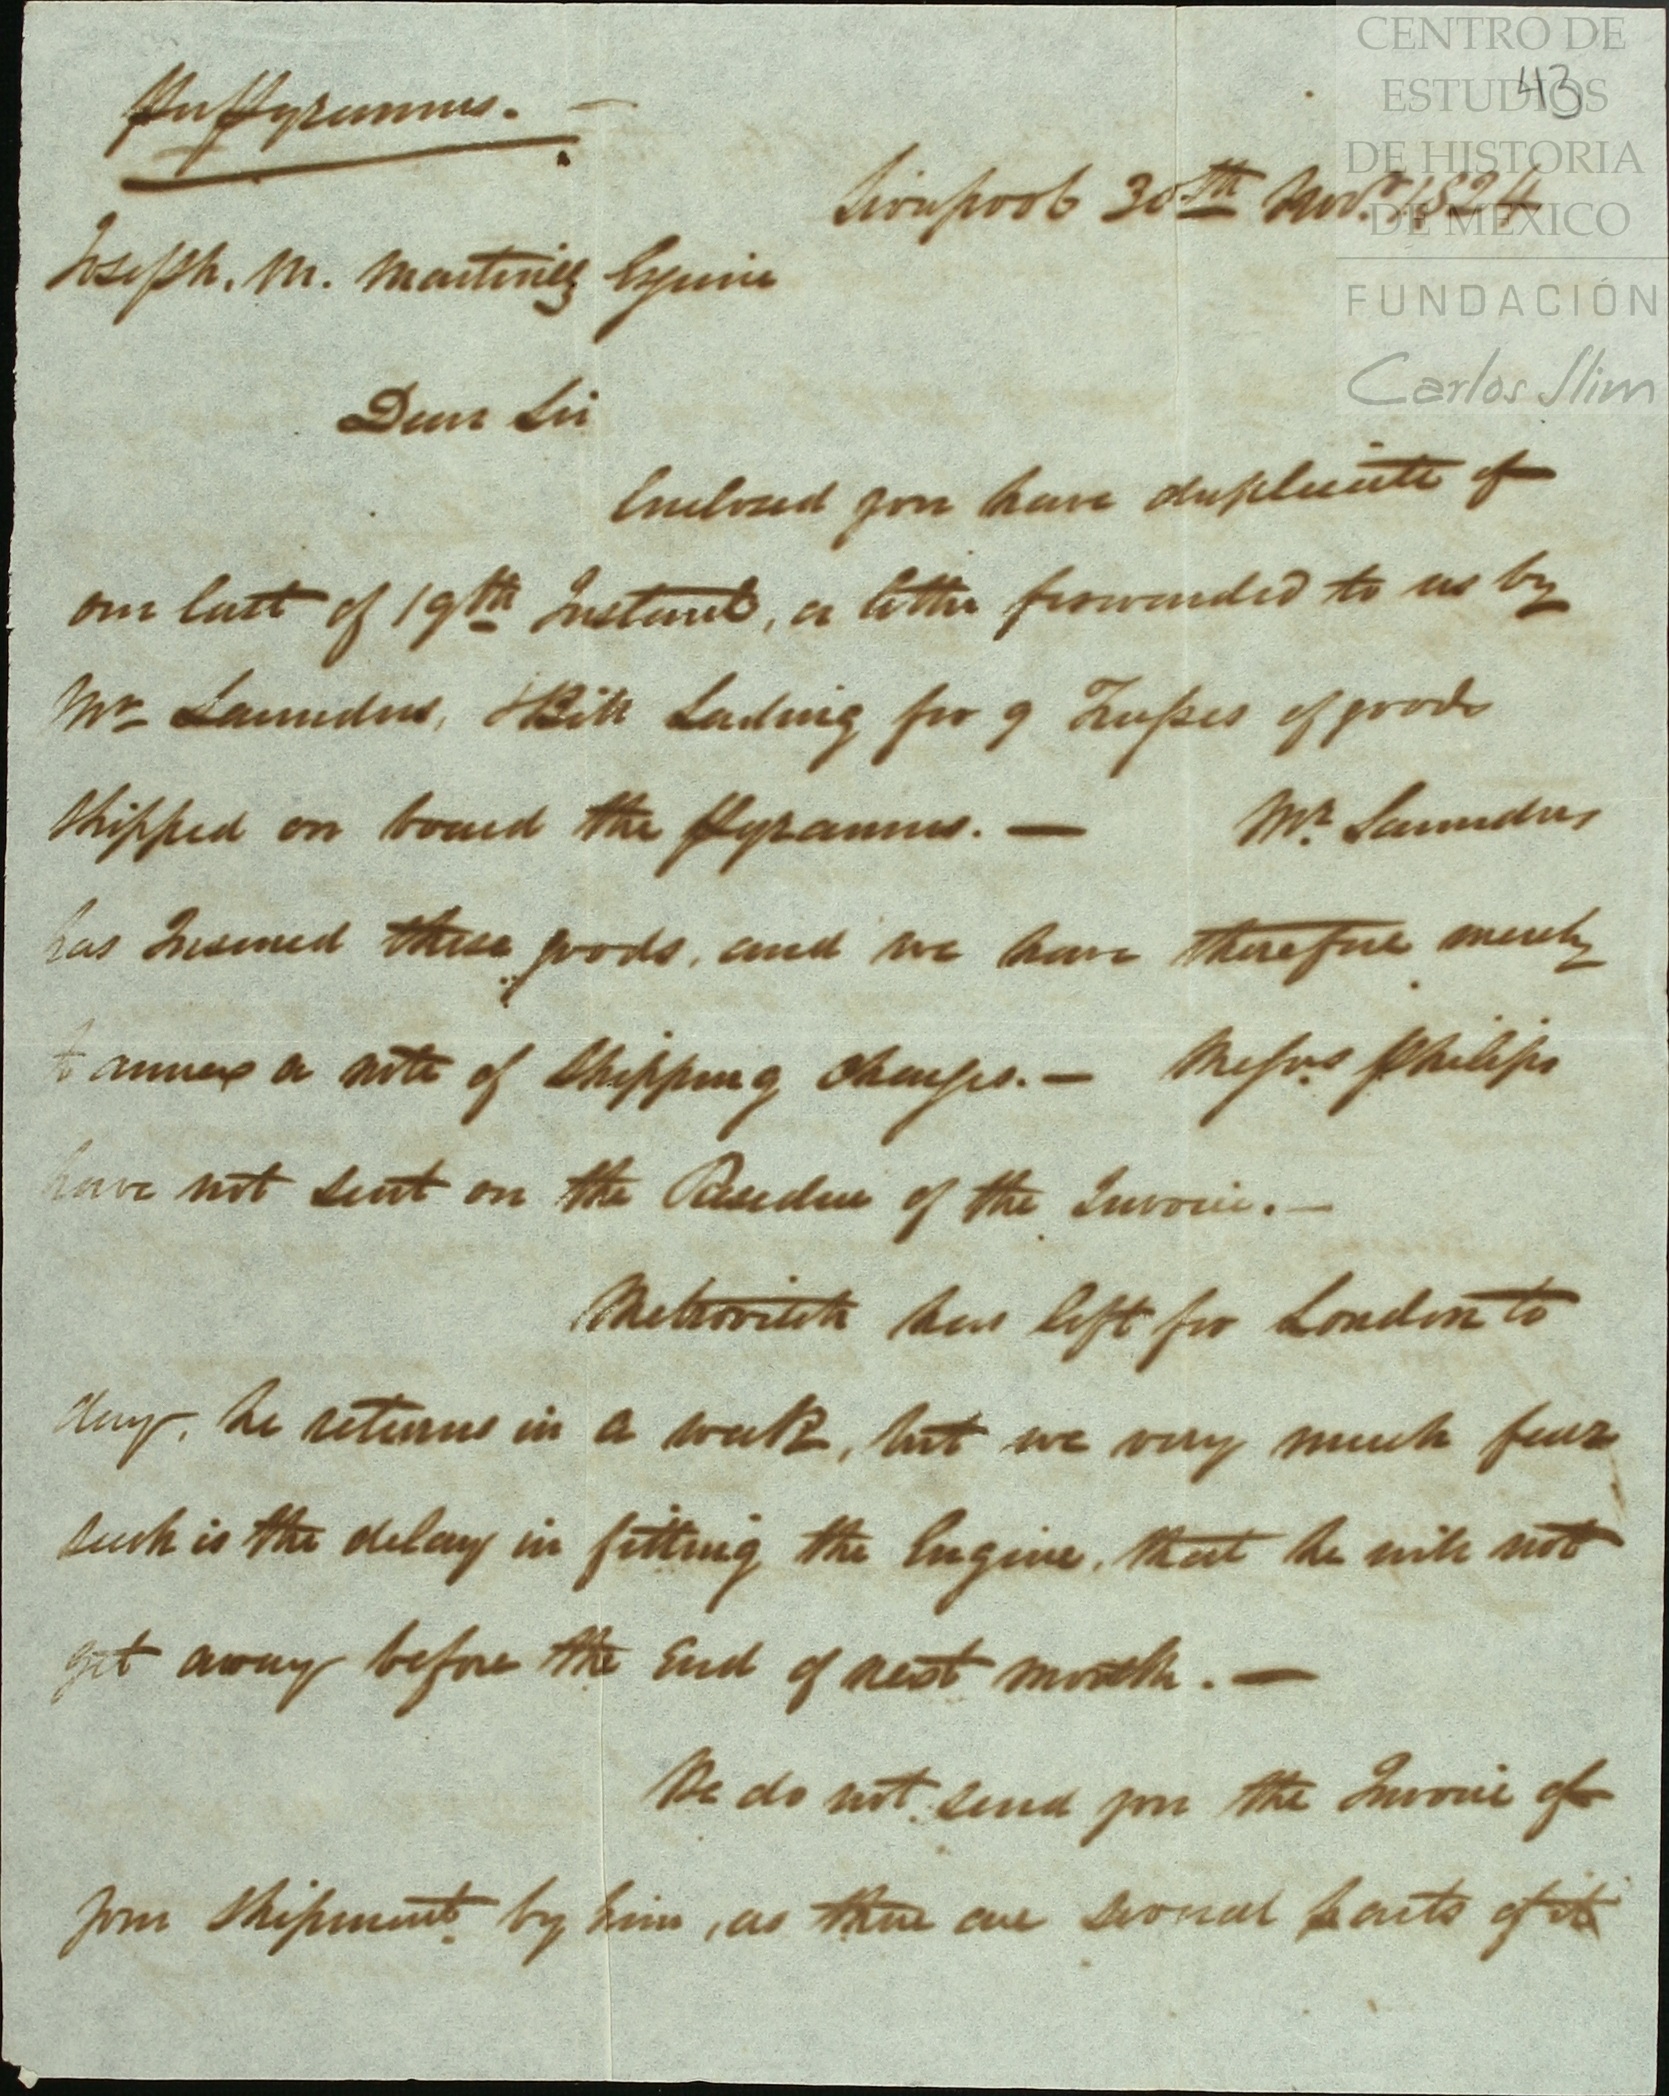 43
CENTRO DE
ESTUDIOS
DE HISTORIA
DE MÉXICO
FUNDACIÓN
Carlos Slim
Per Pyramus. —
Liverpool 30th Novr. 1824
Joseph. M. Martinez Esquire
Dear Sir
Enclosed you have duplicate of
our last of 19th Instant, a letter forwarded to us by
Mr Saunders, & Bill Lading for 9 Trusses of goods
shipped on board the Pyramus. — Mr. Saunders
has Insured these goods, and we have therefore merely
to annex a note of Shipping Charges. — Messrs Philips
have not sent on the Residue of the Invoice. —
has left for London to
day, he returns in a week, but we very much fear
such is the delay in fitting the Engine, that he will not
get away before the End of next month. —
We do not send you the Invoice of
your shipment by him, as there are several parts of it